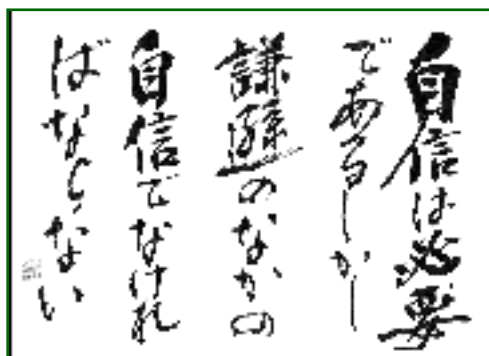 自信は必要
であるしかし
謙遜のなかの
自信でなけれ
ばならない